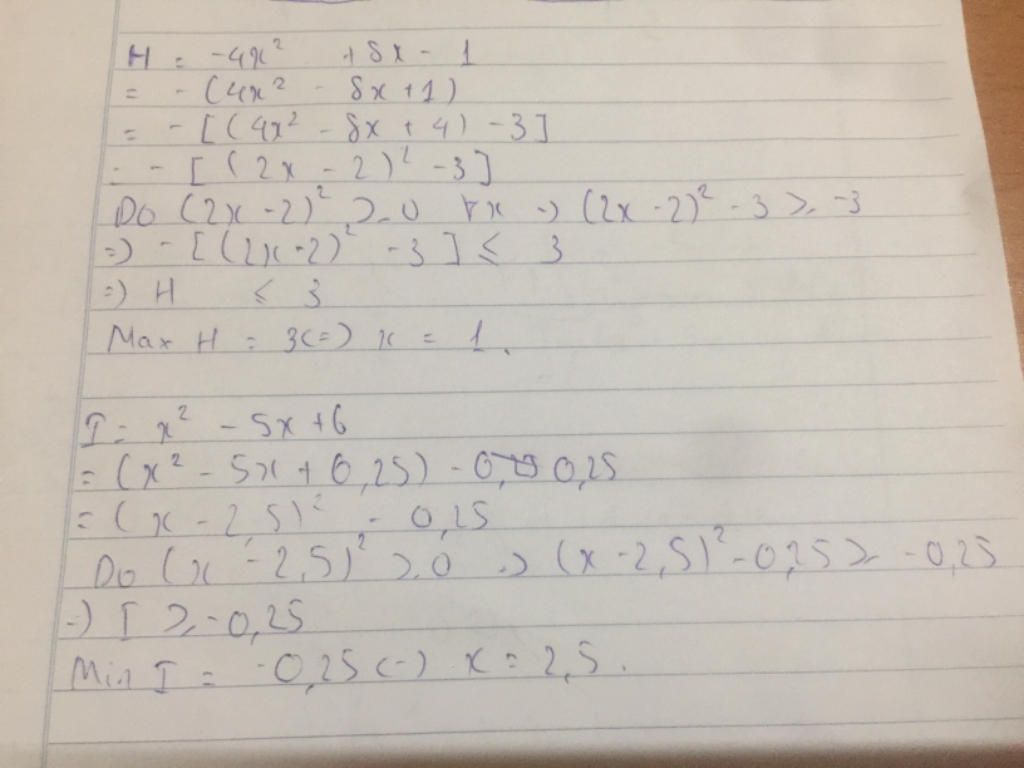 H = -4x² + 8x - 1
= - (4x² - 8x + 1)
= - [(4x² - 8x + 4) - 3]
= - [(2x - 2)² - 3]
Do (2x - 2)² ≥ 0 ∀x → (2x - 2)² - 3 ≥ -3
=) - [(2x - 2)² - 3] ≤ 3
=) H ≤ 3
Max H = 3 <=) x = 1.
I = x² - 5x + 6
= (x² - 5x + 6,25) - 0,25
= (x - 2,5)² - 0,25
Do (x - 2,5)² ≥ 0 → (x - 2,5)² - 0,25 ≥ -0,25
=) I ≥ -0,25
Min I = -0,25 <=) x = 2,5.